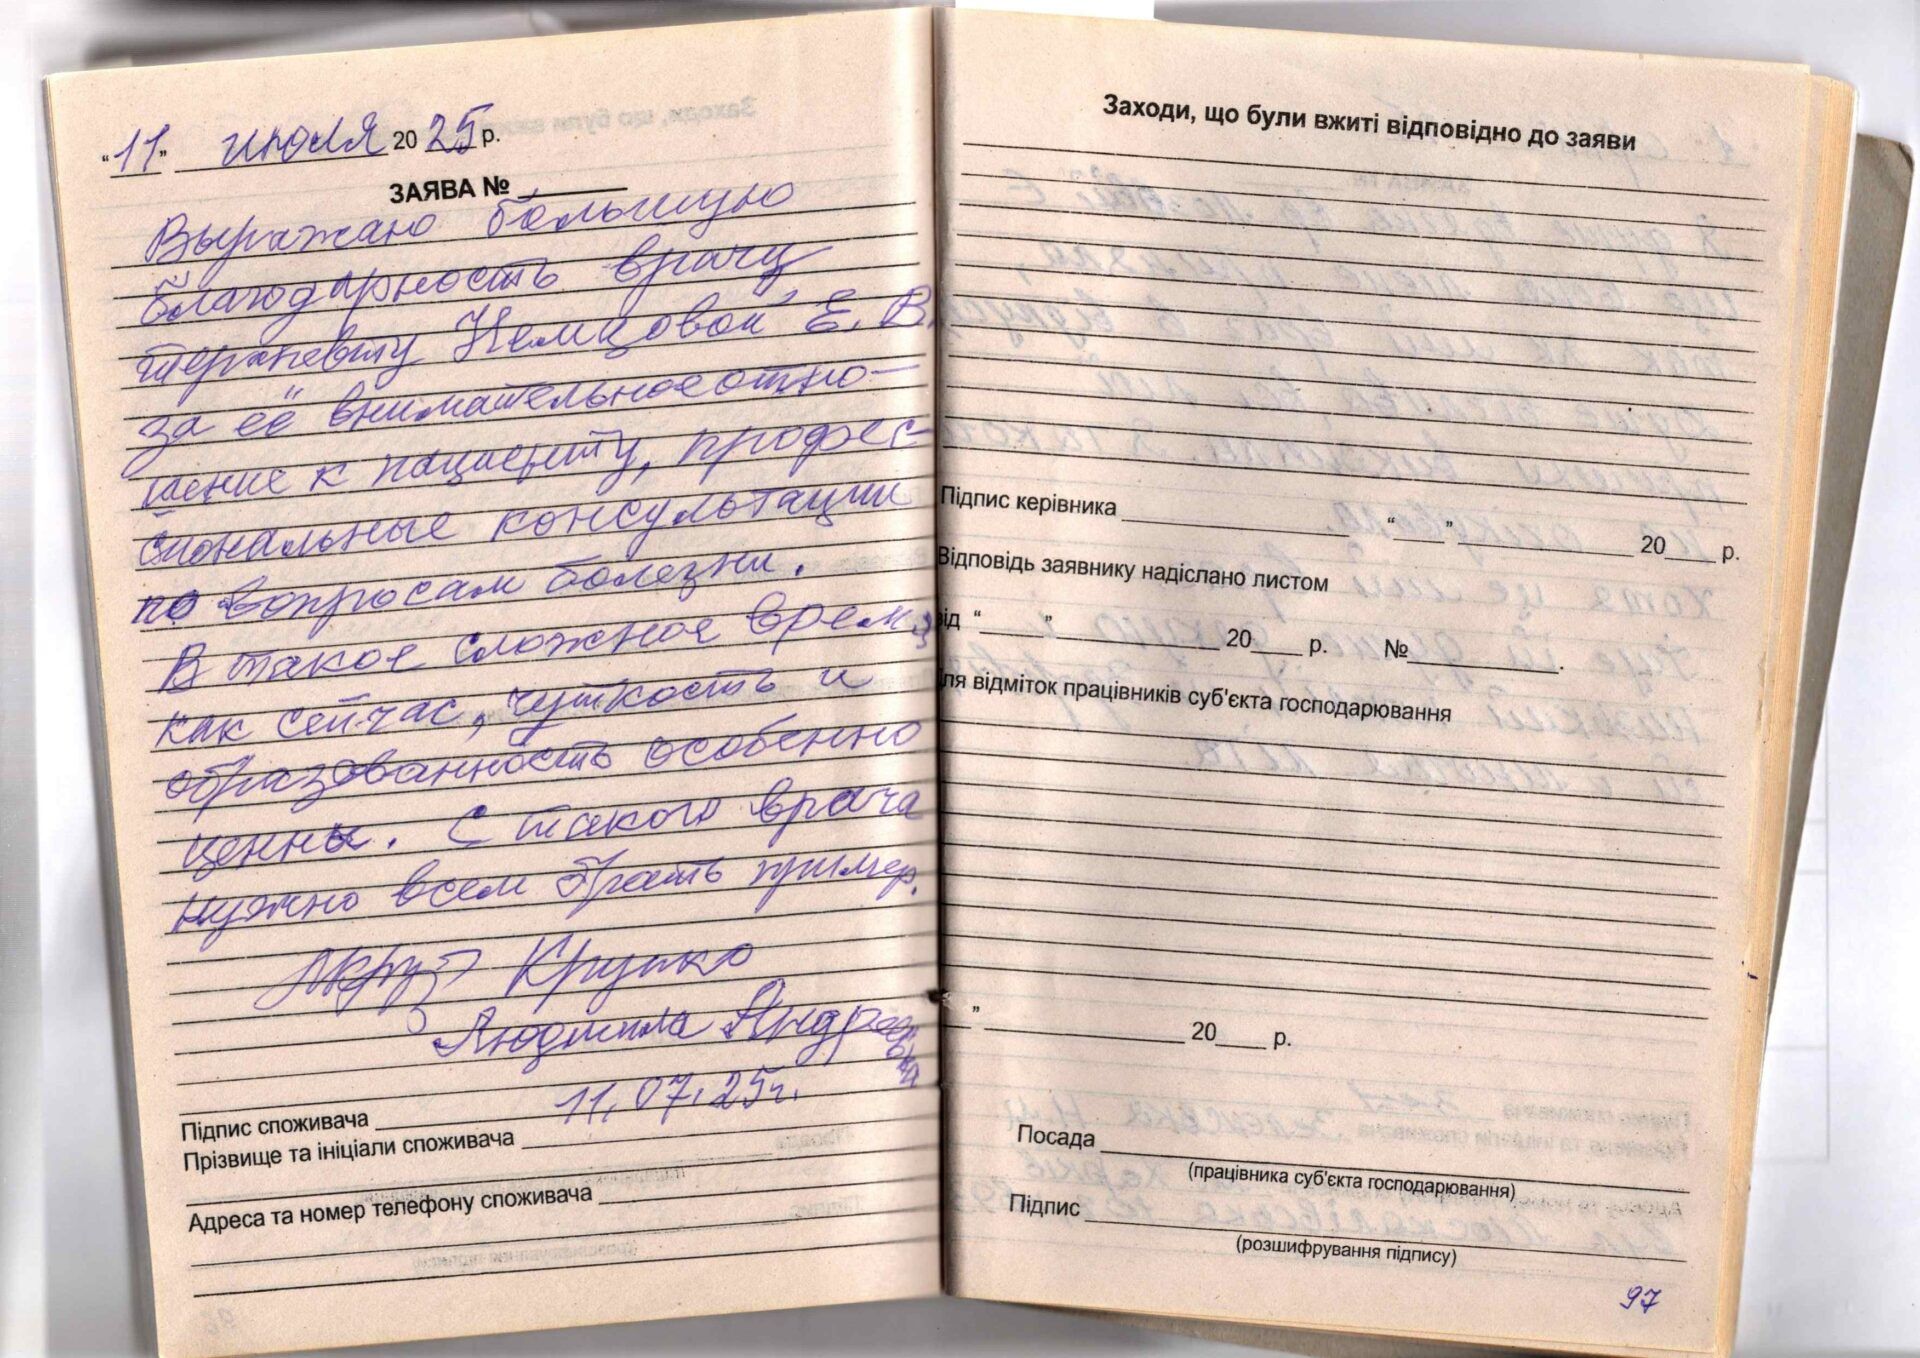 "11" июля 2025 р.
ЗАЯВА № ______
Выражаю большую
благодарность врачу
терапевту Немцовой Е. В.
за её внимательное отно-
шение к пациенту, профес-
сиональные консультации
по вопросам болезни.
В такое сложное время
как сейчас, чуткость и
образованность особенно
ценны. С такого врача
нужно всем брать пример.
Крупко
Людмила Андреевна
11.07.25г.
Підпис споживача
Прізвище та ініціали споживача
Адреса та номер телефону споживача
Заходи, що були вжиті відповідно до заяви
Підпис керівника ______ "___" ______ 20___ р.
Відповідь заявнику надіслано листом
від "___" ______ 20___ р. №______.
Для відміток працівників суб'єкта господарювання
" ______ 20___ р.
Посада
(працівника суб'єкта господарювання)
Підпис
(розшифрування підпису)
97